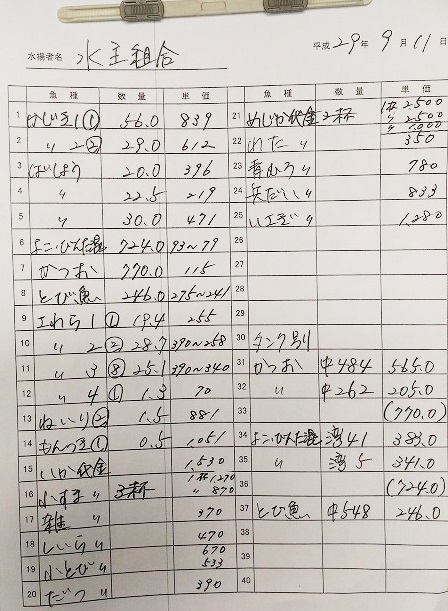 水揚者名 水主組合
平成29年 9月 11日
魚種 数量 単価 魚種 数量 単価
1 かじき1① 56.0 839
2 〃 2② 29.0 612
3 ばしょう 20.0 396
4 〃 22.5 219
5 〃 30.0 471
6 よこ・びんた混 724.0 93～79
7 かつお 770.0 115
8 とび魚 246.0 275～241
9 1① 19.4 255
10 〃 2② 28.7 390～258
11 〃 3⑧ 25.1 390～340
12 〃 4① 1.3 70
13 ねいり② 1.5 881
14 もんつき① 0.5 1,051
15 いか代金 1,530
16 かすま 〃 1杯 1,270
〃 870
17 雑 〃 970
18 しいら 〃 470
19 小とび 〃 670
533
20 だつ 〃 390
21 めじか代金 3杯 1杯 2,500
〃 2,500
〃 1,000
22 〃 350
23 青むろ 〃 780
24 〃 833
25 〃 1,280
26
27
28
29
30 タンク別
31 かつお 中484 565.0
32 〃 中262 205.0
33 (770.0)
34 よこびんた混 湾41 383.0
35 〃 湾5 341.0
36 (724.0)
37 とび魚 中548 246.0
38
39
40